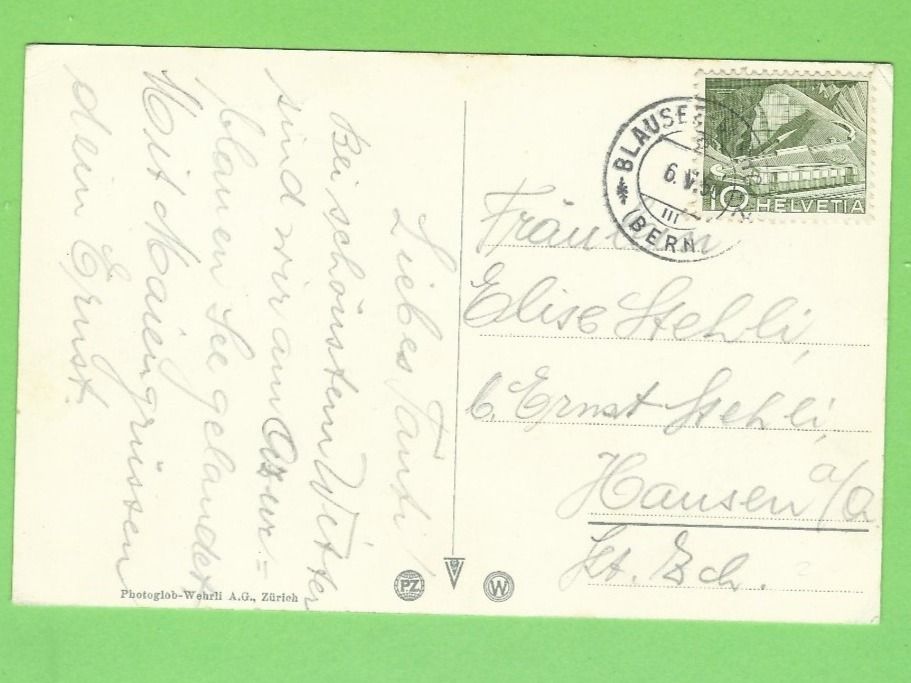 Liebes Tanti!
Bei schönstem Wetter
sind wir am Azur=
blauen See gelandet
Mit Maiengrüssen
dein Ernst.
BLAUSEE
(BERN)
6. V. 5
III
10 HELVETIA
Fräulein
Elise Stehli,
b. Ernst Stehli,
Hausen a/A
Kt. Zch.
PZ
W
Photoglob-Wehrli A.G., Zürich